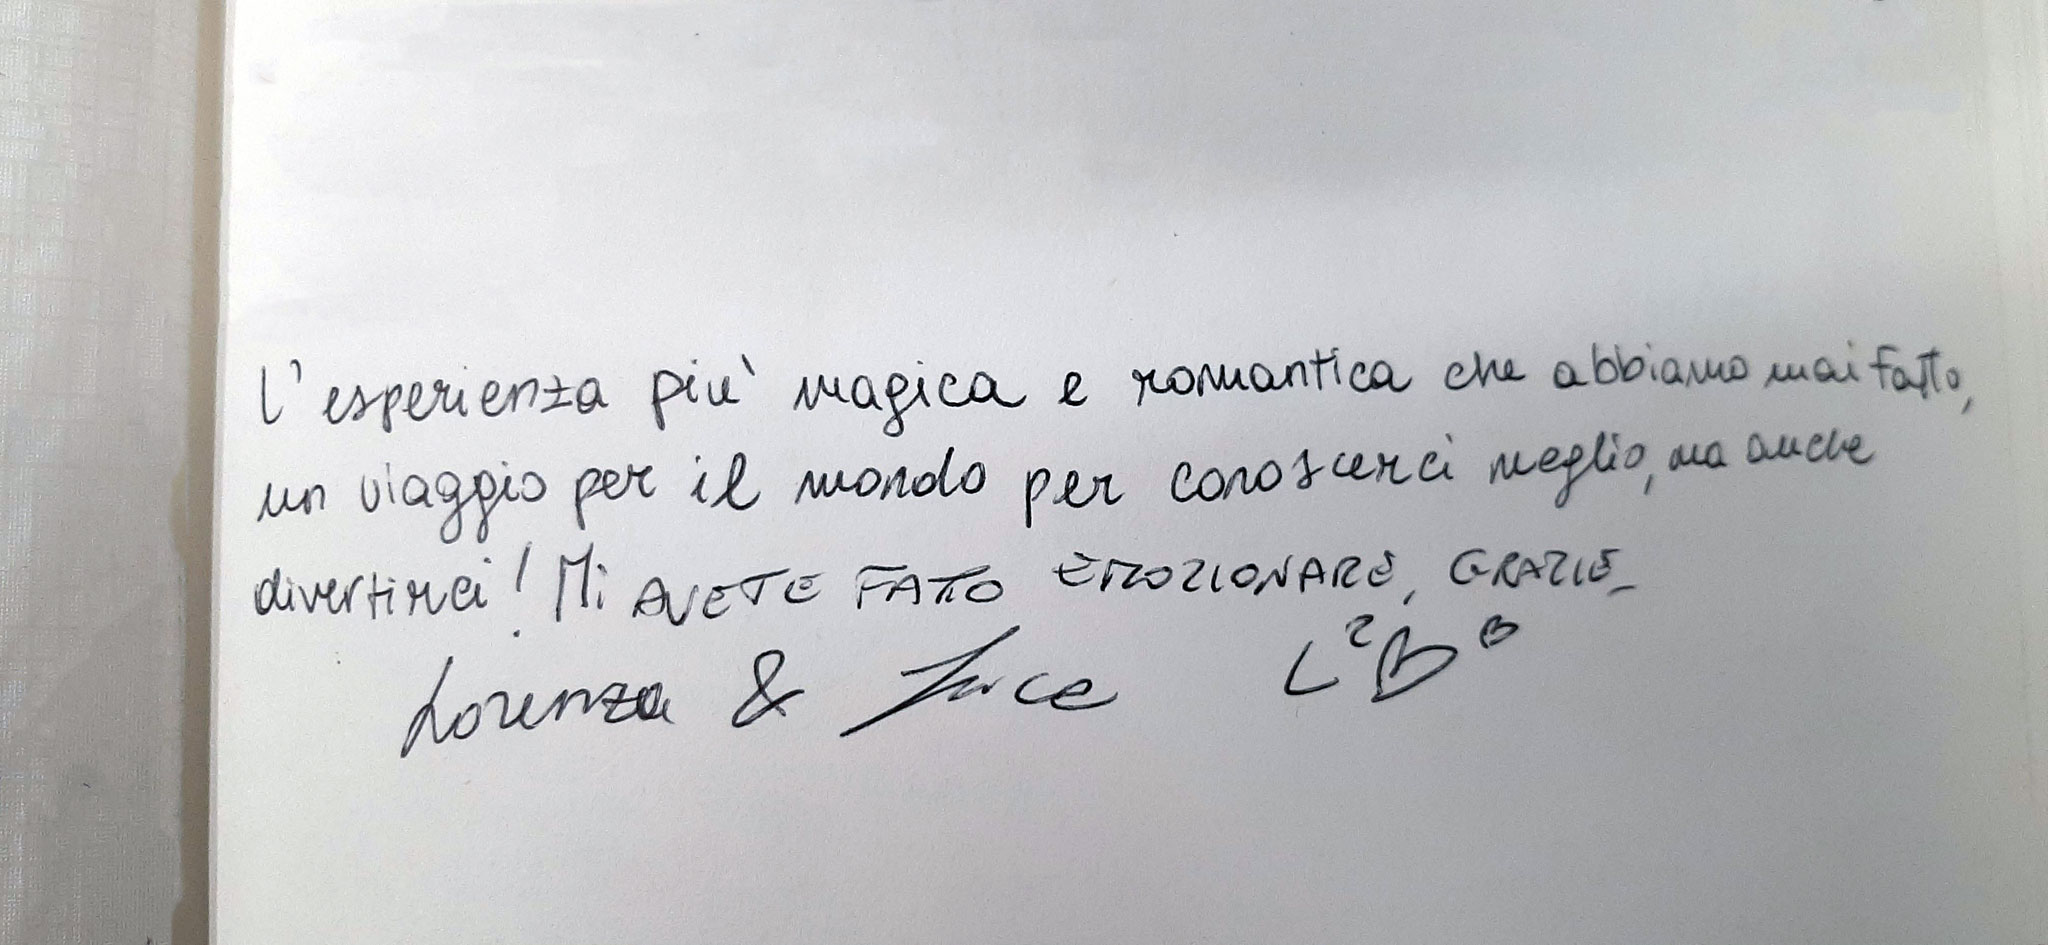 L'esperienza più magica e romantica che abbiamo mai fatto,
un viaggio per il mondo per conoscerci meglio, ma anche
divertirci! Mi AVETE FATTO EMOZIONARE, GRAZIE_
Lorenza & Luca L²